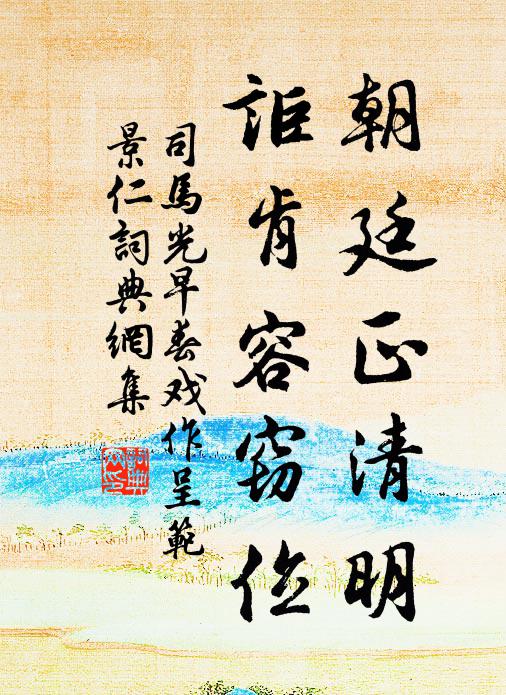 朝廷正清明
詎肯容竊位
司馬光早春戏作呈範
景仁詞典網集